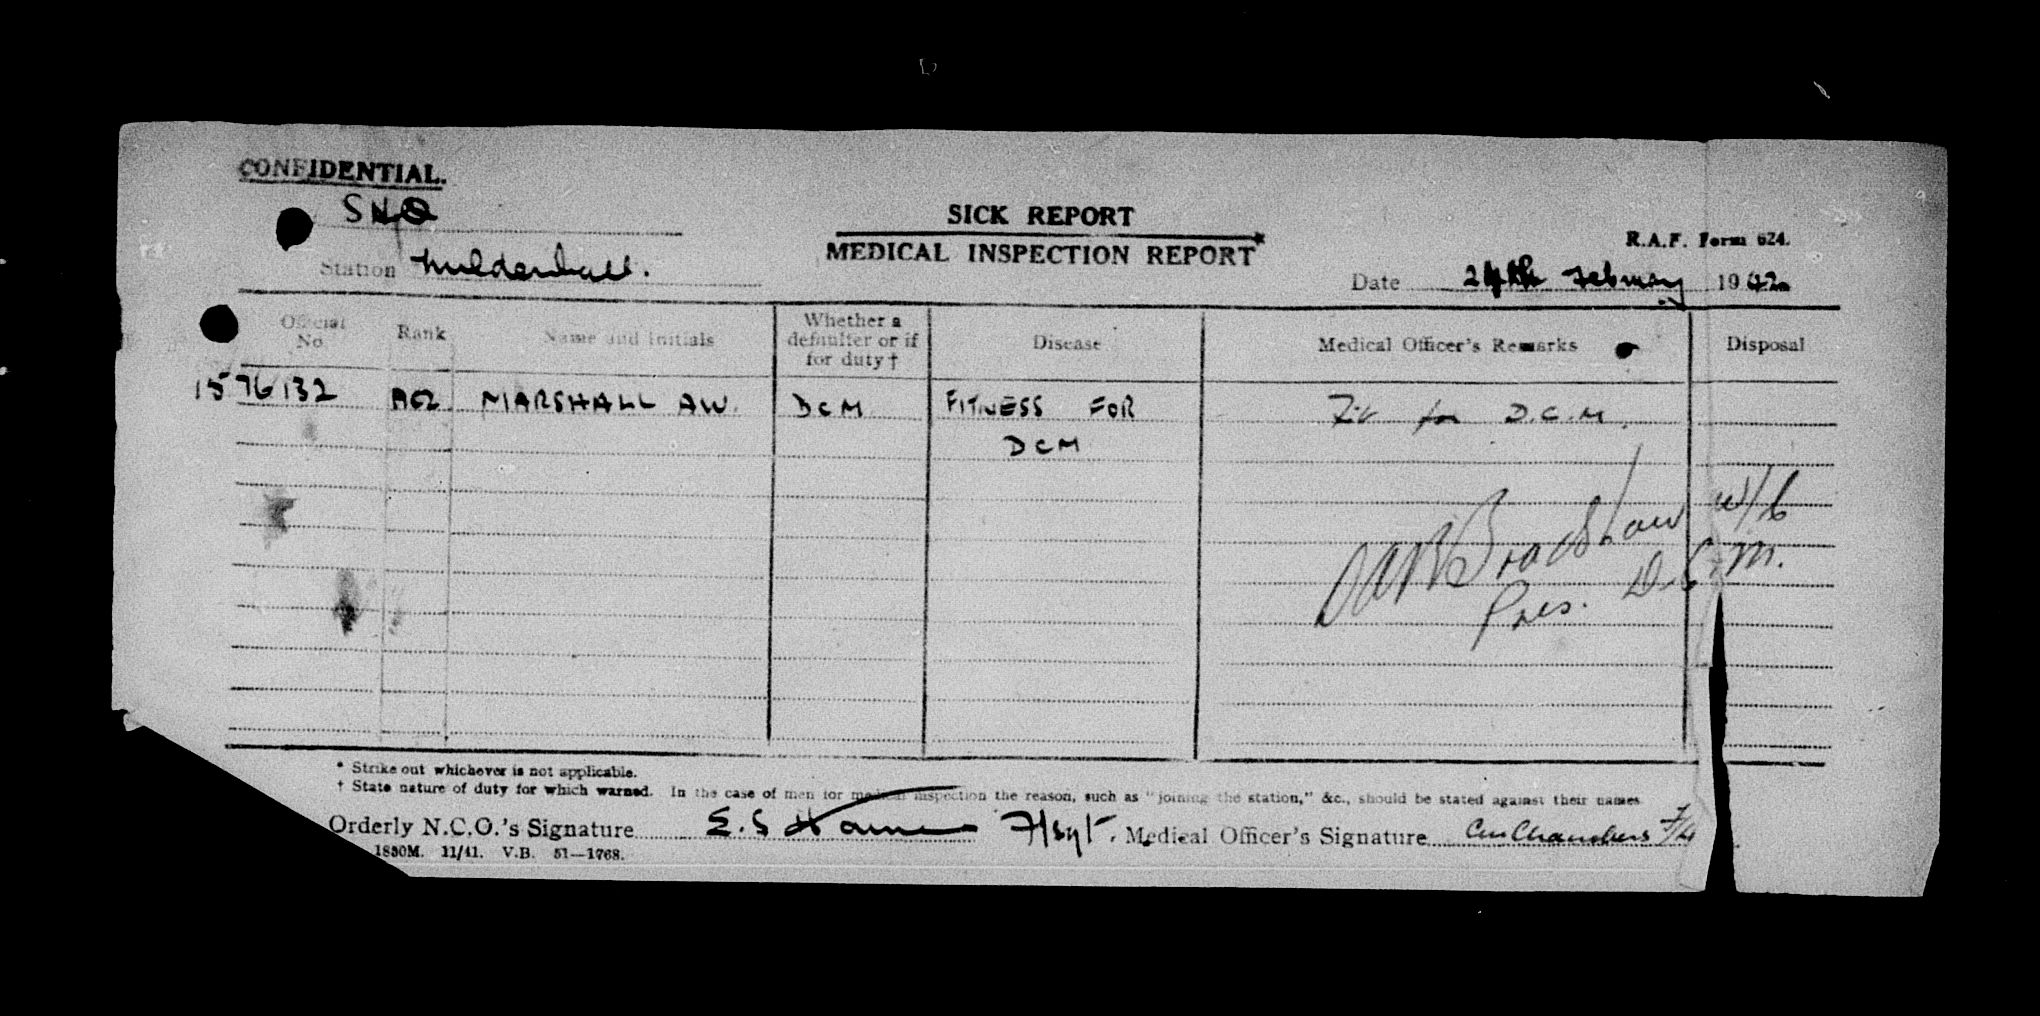 CONFIDENTIAL.
SHQ
Station Mildenhall.
SICK REPORT
MEDICAL INSPECTION REPORT*
R.A.F. Form 624.
Date 24th February 1942
Official No Rank Name and Initials Whether a defaulter or if for duty † Disease Medical Officer's Remarks Disposal
1576132 AC2 MARSHALL AW. DCM FITNESS FOR Fit for D.C.M.
DCM
Bradshaw W/C
Pres. D.C.M.
* Strike out whichever is not applicable.
† State nature of duty for which warned. In the case of men for medical inspection the reason, such as "joining the station," &c., should be stated against their names
Orderly N.C.O.'s Signature E.S F/Sgt. Medical Officer's Signature Chambers F/L
1830M. 11/41. V.B. 51—1768.